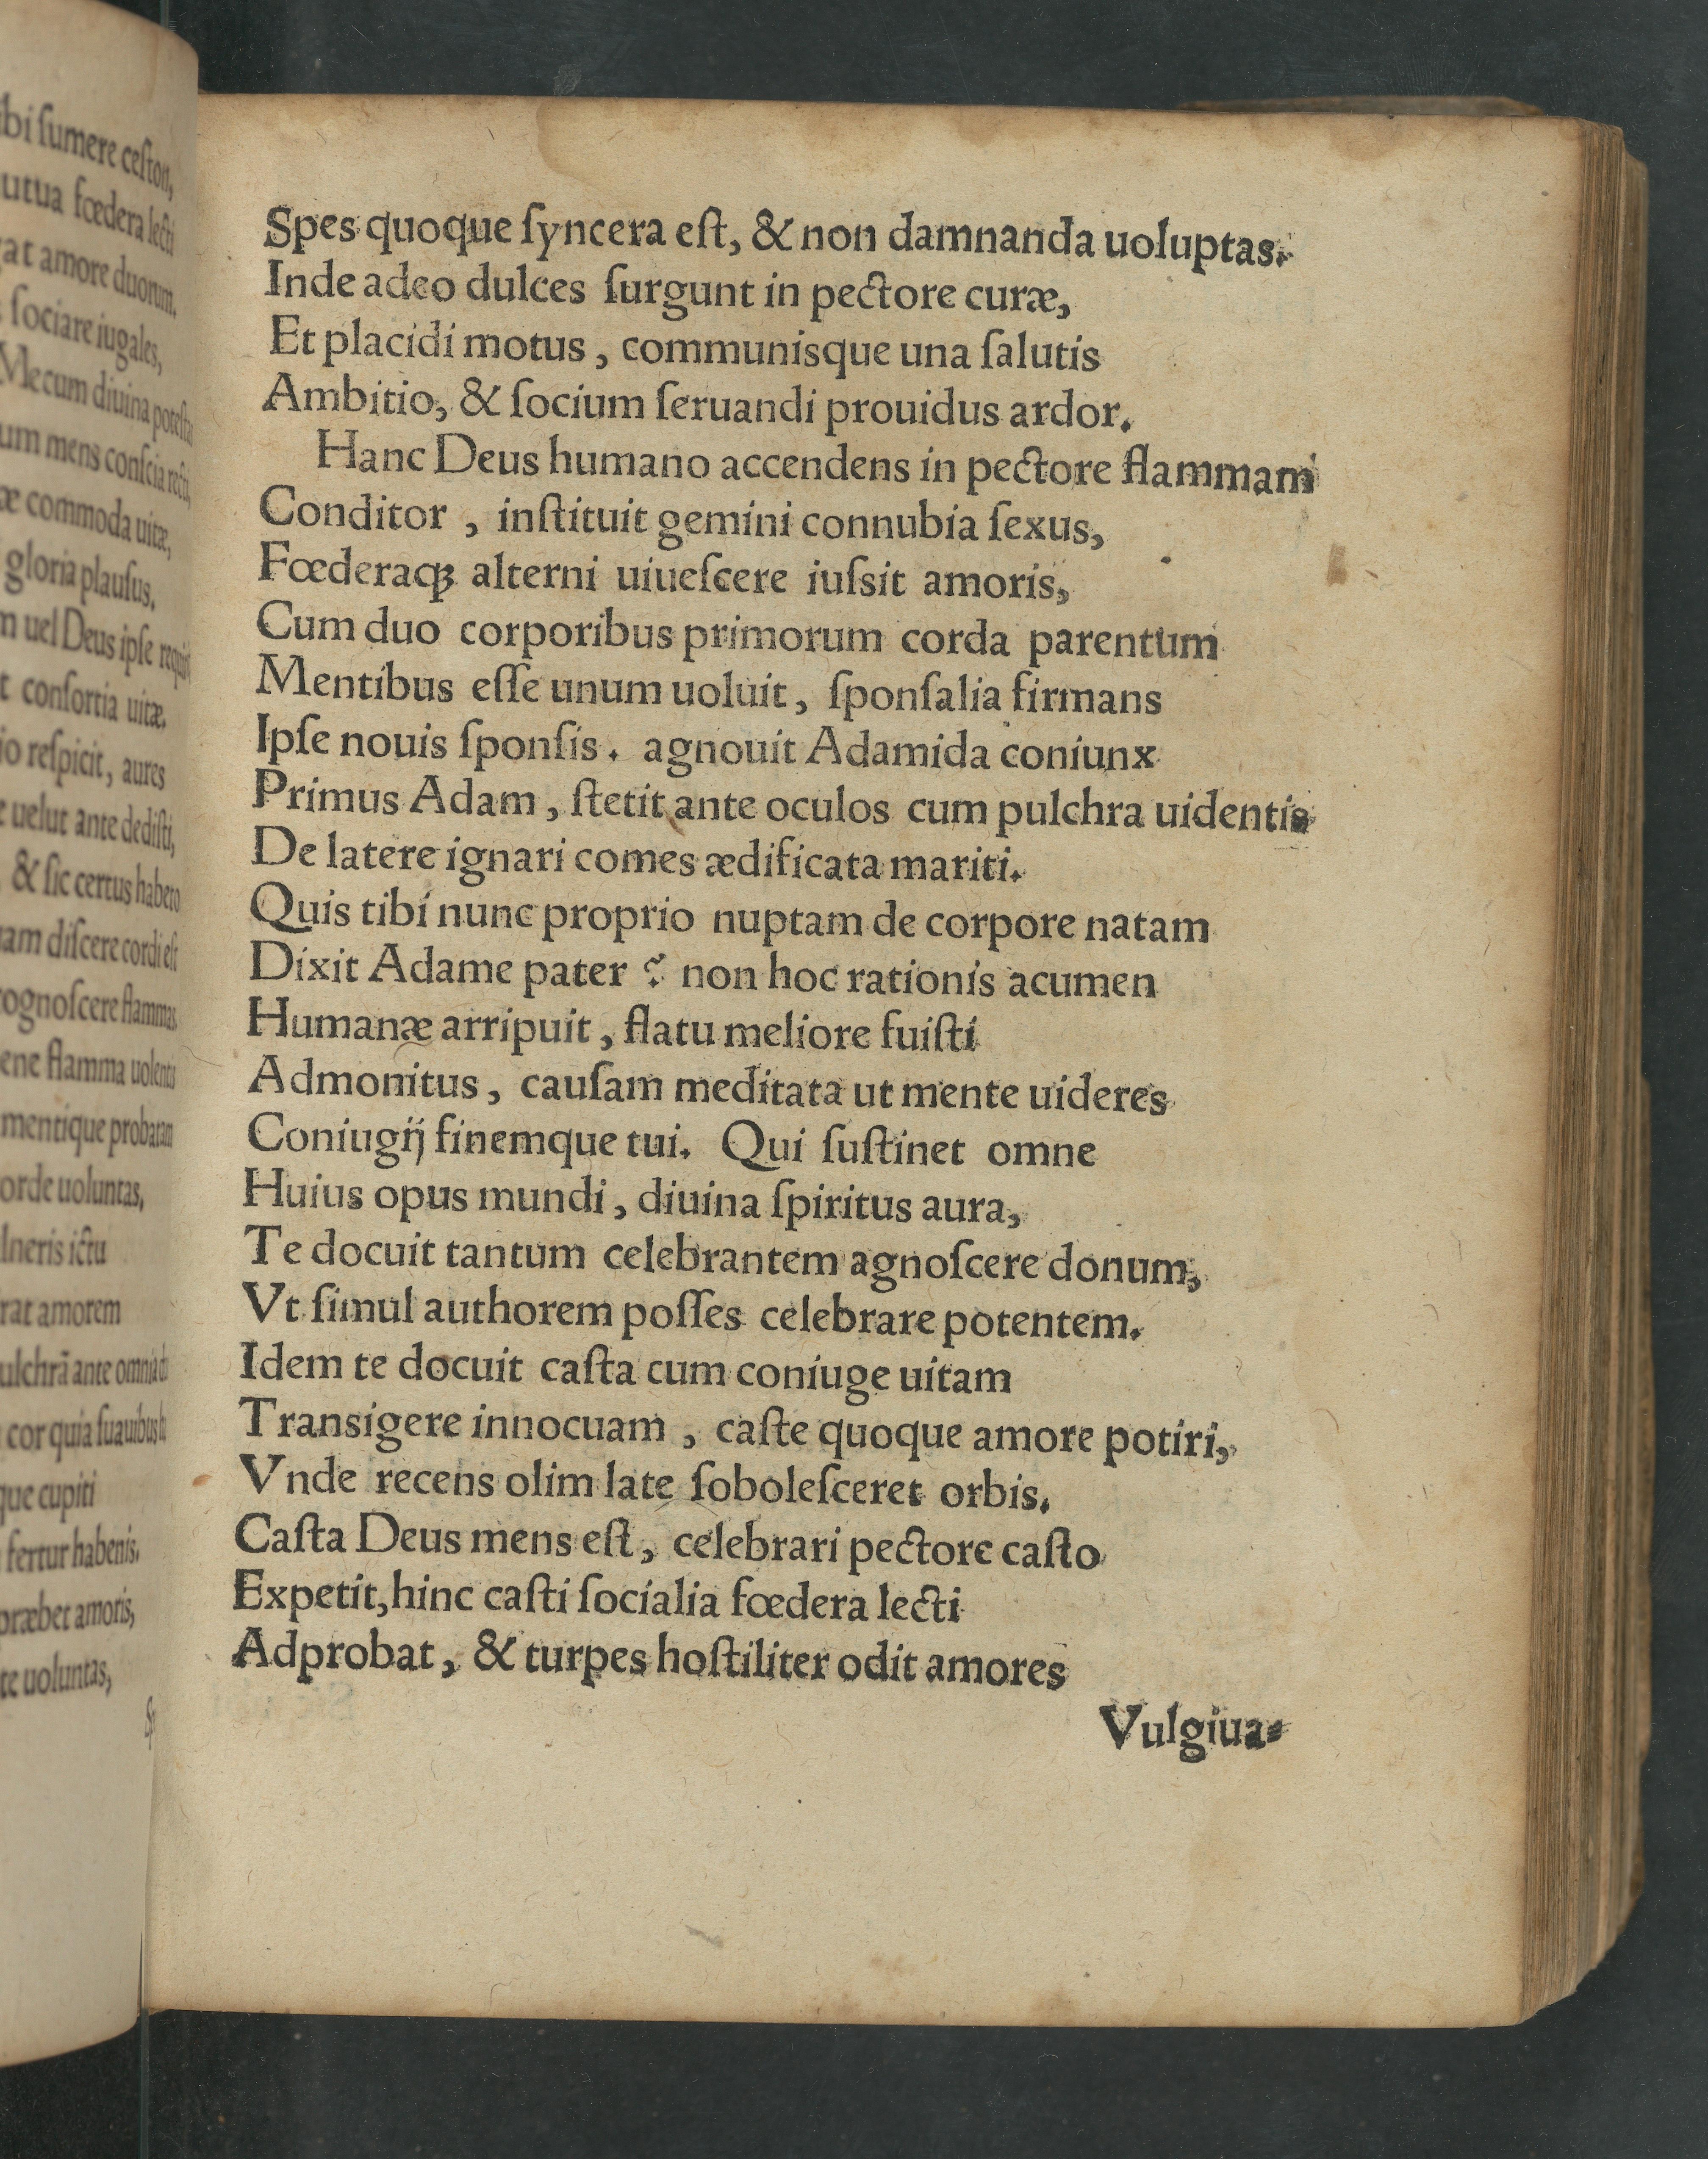 ibi ſumere ceſton,
utua fœdera lecti
at amore duorum.
ſociare iugales,
Mecum diuina poteſtas
um mens conſcia recti,
æ commoda uitæ,
gloria plauſus,
m uel Deus ipſe
t conſortia uitæ.
io reſpicit, aures
uelut ante dediſti,
& ſic certus habeto
am diſcere cordi eſt
ognoſcere flammas
ene flamma
mentique probaram
orde uoluntas,
lneris ictu
rat amorem
ulchrā ante omnia
cor quia ſuauibus
que cupiti
fertur habenis,
præbet amoris,
te uoluntas,
Sp
Spes quoque ſyncera eſt, & non damnanda uoluptas.
Inde adeo dulces ſurgunt in pectore curæ,
Et placidi motus, communisque una ſalutis
Ambitio, & ſocium ſeruandi prouidus ardor.
Hanc Deus humano accendens in pectore flammam
Conditor, inſtituit gemini connubia ſexus,
Fœderaqꝫ alterni uiueſcere iuſsit amoris,
Cum duo corporibus primorum corda parentum
Mentibus eſſe unum uoluit, ſponſalia firmans
Ipſe nouis ſponſis. agnouit Adamida coniunx
Primus Adam, ſtetit ante oculos cum pulchra uidentis
De latere ignari comes ædificata mariti.
Quis tibi nunc proprio nuptam de corpore natam
Dixit Adame pater ? non hoc rationis acumen
Humanæ arripuit, flatu meliore fuiſti
Admonitus, cauſam meditata ut mente uideres
Coniugij finemque tui. Qui ſuſtinet omne
Huius opus mundi, diuina ſpiritus aura,
Te docuit tantum celebrantem agnoſcere donum,
Vt ſimul authorem poſſes celebrare potentem.
Idem te docuit caſta cum coniuge uitam
Transigere innocuam, caſte quoque amore potiri,
Vnde recens olim late ſoboleſceret orbis.
Caſta Deus mens eſt, celebrari pectore caſto
Expetit, hinc caſti ſocialia fœdera lecti
Adprobat, & turpes hoſtiliter odit amores
Vulgiua-